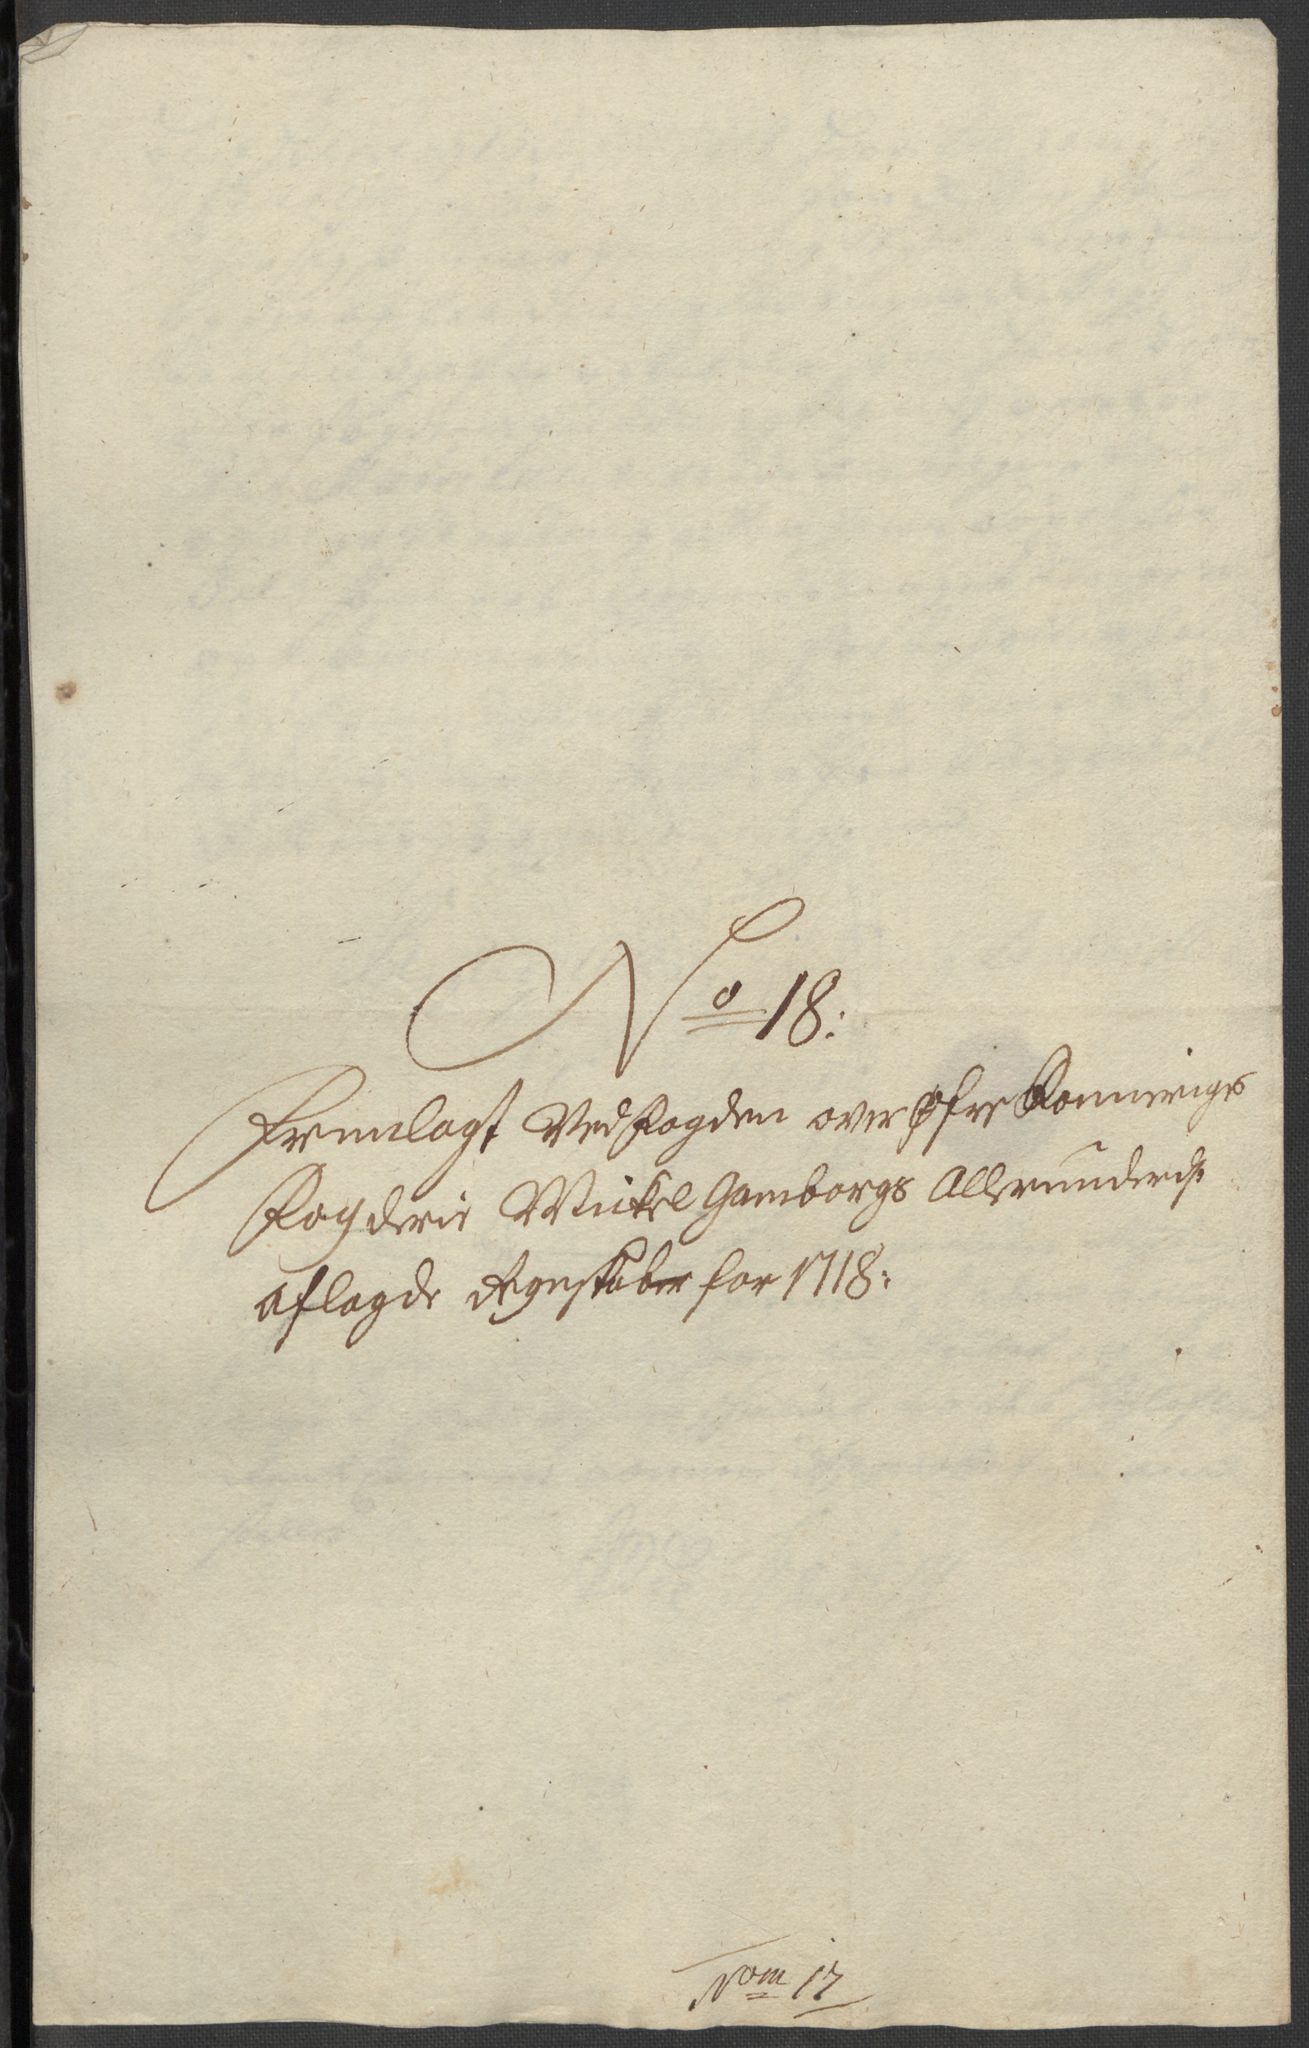 No 18:
Fremlagt Ved Fogden over Øfre Romerigs
Fogderie Mickel Gamborgs Allerunderdst
aflagde Regnskaber for 1718:
Nom 17